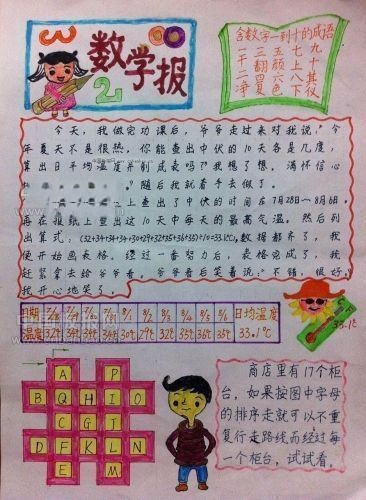 数学报
2
含数字一到十的成语
一干二净
三翻四复
五颜六色
七上八下
九十其仪
今天，我做完功课后，爷爷走过来对我说：“今
年夏天不是很热，你能查出中伏的10天各是几度，
算出日平均温度并制成表吗？”我想了想，满怀信心
随后我就着手去做了。
上查出中伏的时间在7月28日～8月6日
再在报纸上查出这10天中每天的最高气温。然后列
出算式：(32+34+34+34+30+29+32+35+36+35)÷10=33.1(℃)，数据都齐了，我
便开始画表格。经过一番努力后，表格完成了，我
赶紧拿去给爷爷看，爷爷看后笑着说：“不错，很好”
我开心地笑了。
日期 7/28 7/29 7/30 7/31 8/1 8/2 8/3 8/4 8/5 8/6 日均温度
温度 32℃ 34℃ 34℃ 34℃ 30℃ 29℃ 32℃ 35℃ 36℃ 35℃ 33.1℃
33.1℃
A P
B Q H I O
C G J
D F K L N
E M
商店里有17个柜
台，如果按图中字母
的排序走就可以不重
复行走路线而经过每
一个柜台，试试看。